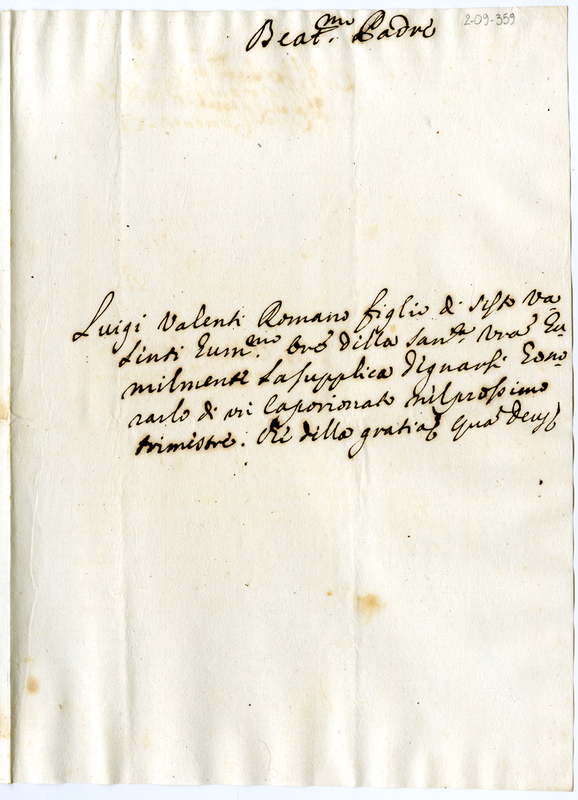 2-09-359
Beat.mo Padre
Luigi Valenti Romano figlio di Sisto Va
lenti Hum.mo Ore della San.tà Vra Hu
milmente la supplica degnarsi Hono-
rarlo di un Caporionato nel prossimo
trimestre. Che della gratia Quas Deus